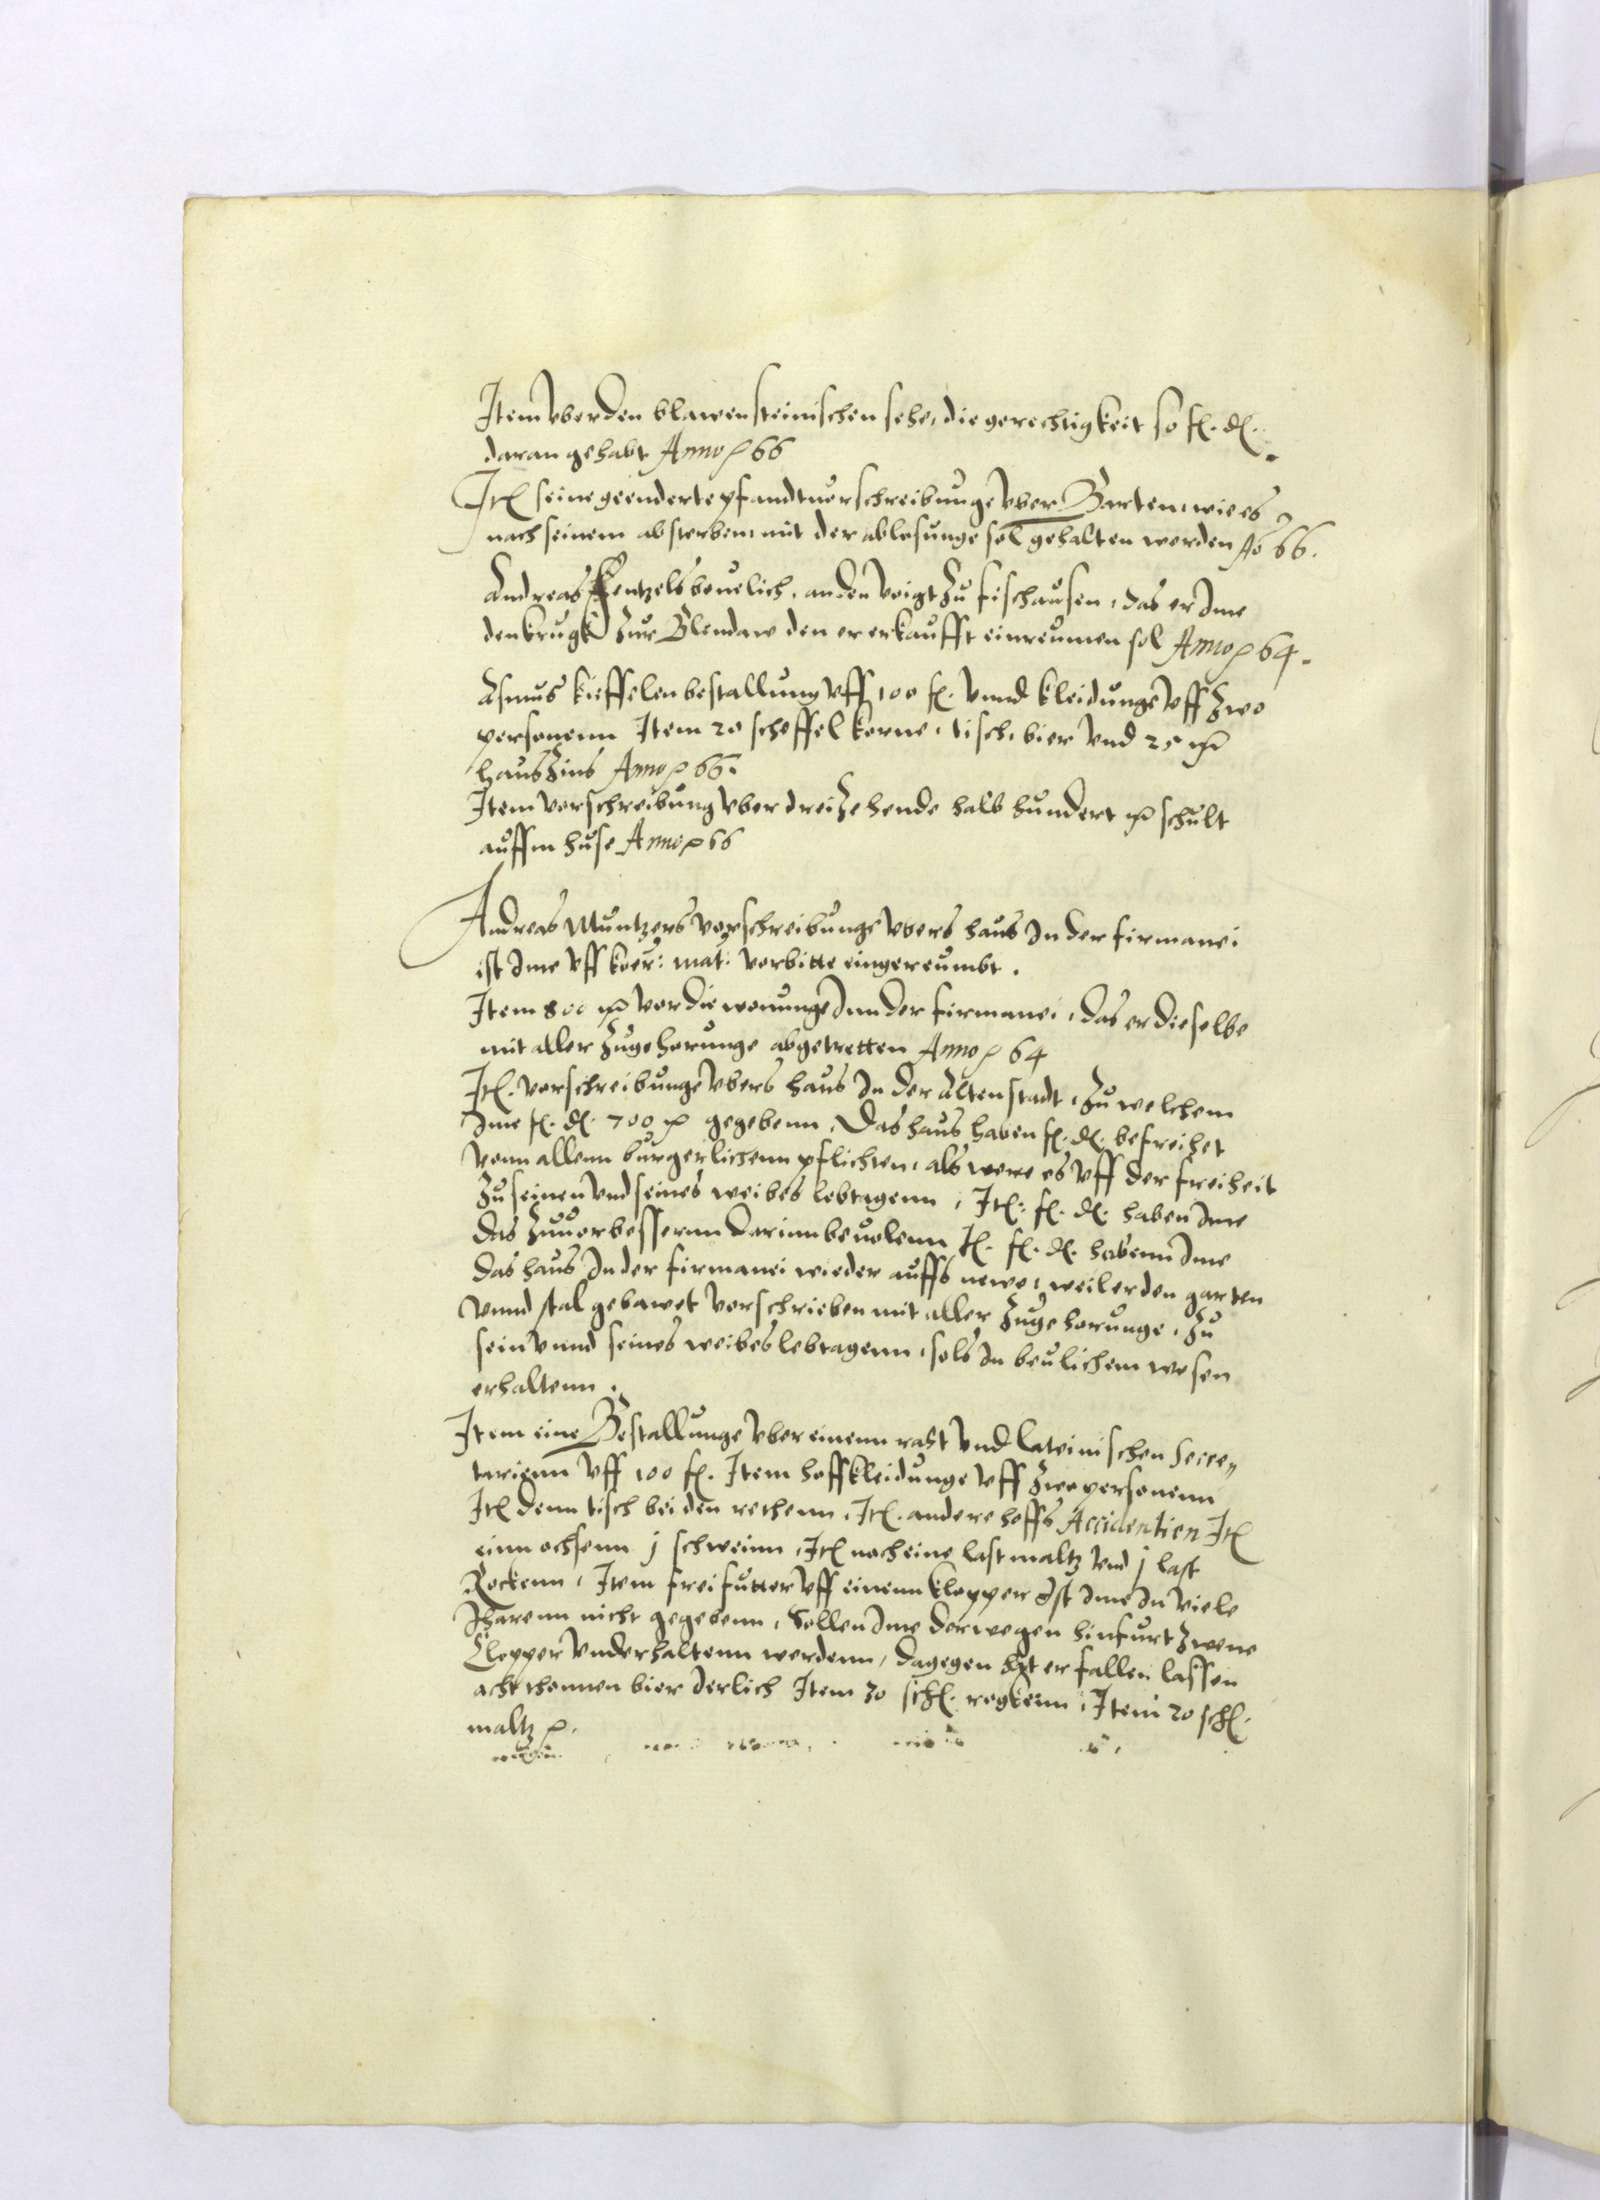 Item vber den blawensteinischen sehe, die gerechtigkeit so f. d.
daran gehabt Anno 66
It. seine geenderte pfandtuerschreibunge vber Barten, wie es
nach seinem absterben, mit der ablosunge sol gehalten werden Ao 66.
Andreas Kentzels beuelich, an den voigt zu fischausen, das er Ime
den krugk zur Blendaw den er erkaufft einreumen sol Anno 64.
Asmus kieffelen bestallung vff 100 f. vnnd kleidunge vff zwo
personenn Item 20 scheffel korne, tisch, bier vnd 25 m
hauszins Anno 66.
Item verschreibung vber dreizehende halb hundert m schult
auffm huse Anno 66
Andreas Muntzers verschreibunge vbers haus In der firmanei
ist Ime vff koer: mat: vorbitte eingereumbt.
Item 800 m vor die wonunge Inn der firmanei, das er dieselbe
mit aller zugehorunge abgetretten Anno 64
It. verschreibunge vbers haus In der Altenstadt, zu welchem
Ime f. d. 700 m gegebenn, Das haus haben f. d. befreihet
venn allenn burgerlichenn pflichten, als were es vff der freiheit
zu seinen vnd seines weibes lebtagenn, It. f. d. haben Ime
das zuuerbessernn darinn beuolenn It. f. d. habenn Ime
das haus In der firmanei wieder auffs newe, weil er den garten
vnnd stal gebawet verschrieben mit aller zugehorunge, zu
sein vnnd seines weibes lebtagenn, sols In beulichem wesen
erhaltenn.
Item eine Bestallunge vber einenn raht vnd lateinischen Secre
tarienn vff 100 f. Item hoffkleidunge vff zwo personenn
It. denn tisch bei den rethenn, It. andere hoffs Accidentien It.
einn ochsenn j schweinn, It. noch eine last maltz vnd j last
Rockenn, Item frei futter vff einenn klepper Ist Ime In viele
Iharenn nicht gegebenn, Sollen Ime derwegen hinfurt zwene
Clepper vnderhaltenn werdenn, dagegen hat er fallen lassen
acht thonnen bier Ierlich Item 30 schl. rogkenn, Item 20 schl.
maltz